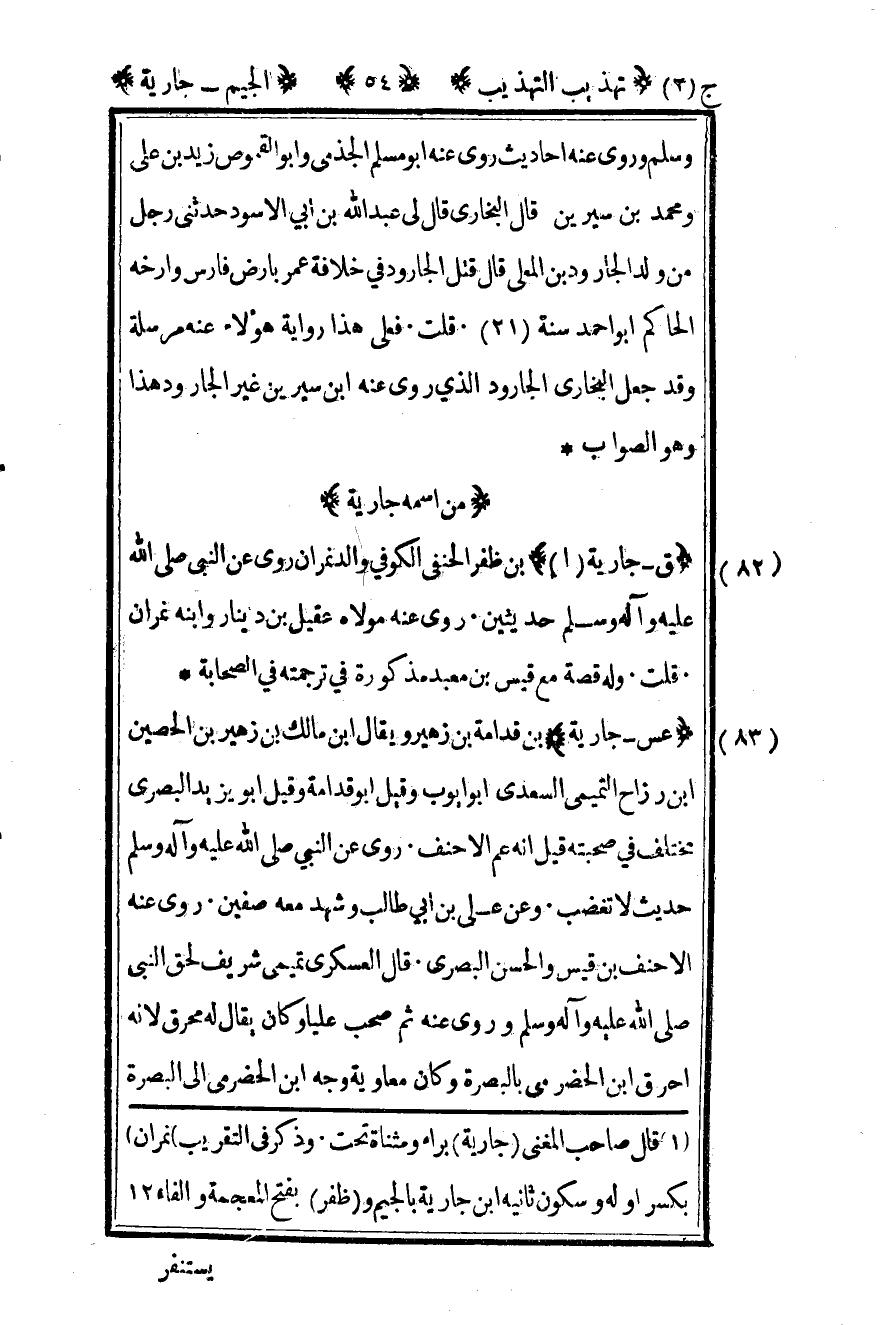 ج (٣) ﴿ تهذيب التهذيب ﴾ ﴿ ٥٤ ﴾ ﴿ الجيم – جارية ﴾
وسلم وروى عنه احاديث روى عنه ابو مسلم الجذمى وابو القموص زيد بن على
ومحمد بن سيرين قال البخارى قال لى عبدالله بن ابي الاسود حدثنى رجل
من ولد الجارود بن المعلى قال قتل الجارود في خلافة عمر بارض فارس وارخه
الحاكم ابو احمد سنة (٢١) ٠ قلت ٠ فعلى هذا رواية هؤلاء عنه مرسلة
وقد جعل البخارى الجارود الذي روى عنه ابن سيرين غير الجارود هذا
وهو الصواب *
﴿ من اسمه جارية ﴾
(٨٢) ﴿ ق – جارية (١) ﴾ بن ظفر الحنفى الكوفي والد نمران روى عن النبى صلى الله
عليه وآله وسلم حديثين ٠ روى عنه مولاه عقيل بن دينار وابنه نمران
٠ قلت ٠ وله قصة مع قيس بن معبد مذكورة في ترجمته في الصحابة *
(٨٣) ﴿ عس – جارية ﴾ بن قدامة بن زهير ويقال ابن مالك بن زهير بن الحصين
ابن رزاح التميمى السعدى ابو ايوب وقيل ابو قدامة وقيل ابو يزيد البصرى
تختلف في صحبته قيل انه عم الاحنف ٠ روى عن النبي صلى الله عليه وآله وسلم
حديث لا تغضب ٠ وعن على بن ابي طالب وشهد معه صفين ٠ روى عنه
الاحنف بن قيس والحسن البصرى ٠ قال العسكرى تميمى شريف لحق النبى
صلى الله عليه وآله وسلم وروى عنه ثم صحب عليا وكان يقال له محرق لانه
احرق ابن الحضرمى بالبصرة وكان معاوية وجه ابن الحضرمى الى البصرة
(١) قال صاحب المغنى (جارية) براء ومثناة تحت ٠ وذكر في التقريب (نمران)
بكسر اوله وسكون ثانيه ابن جارية بالجيم و (ظفر) بفتح المعجمة والفاء ١٢
يستنفر